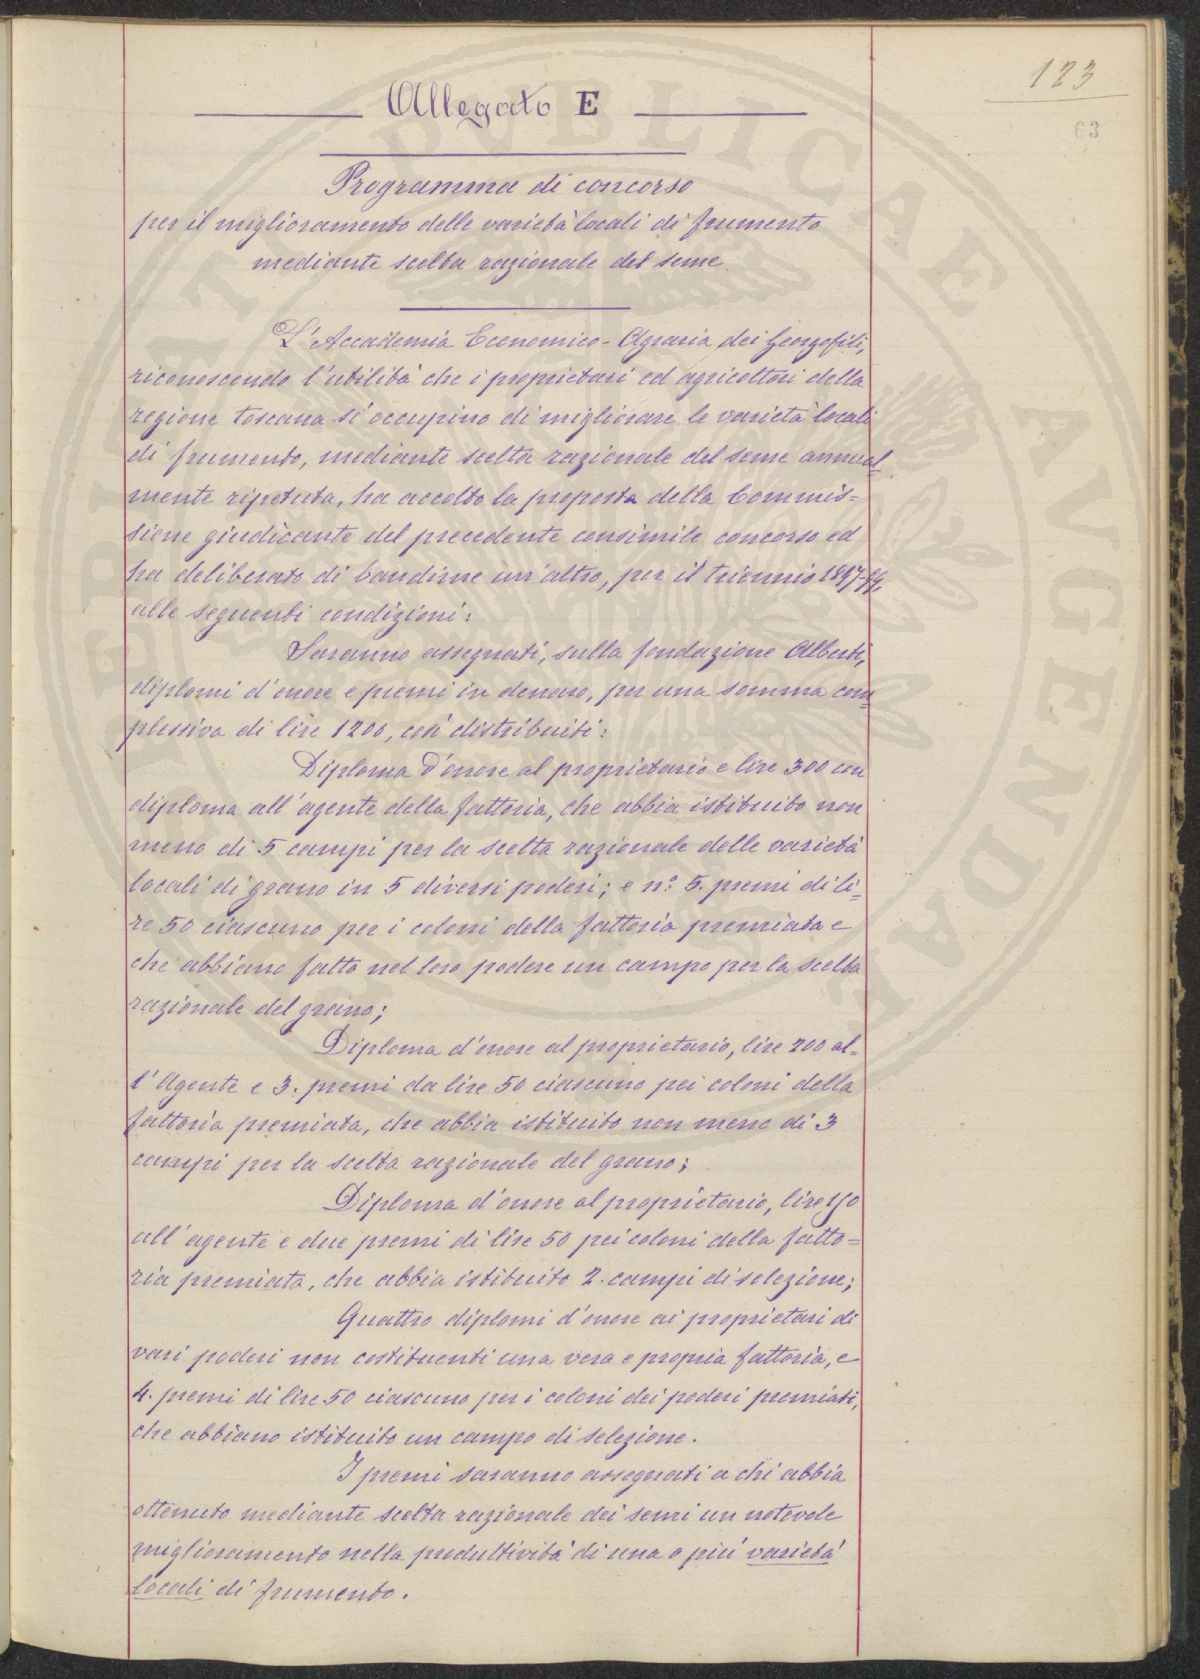 123
63
Allegato E
Programma di concorso
per il miglioramento delle varietà locali di frumento
mediante scelta razionale del seme
L'Accademia Economico-Agraria dei Georgofili,
riconoscendo l'utilità che i proprietari ed agricoltori della
regione toscana si occupino di migliorare le varietà locali
di frumento, mediante scelta razionale del seme annual=
mente ripetuta, ha accolto la proposta della Commis=
sione giudicante del precedente consimile concorso ed
ha deliberato di bandirne un'altro, per il triennio 1897-99,
alle seguenti condizioni:
Saranno assegnati, sulla fondazione Alberti,
diplomi d'onore e premi in denaro, per una somma com=
plessiva di lire 1200, così distribuiti:
Diploma d'onore al proprietario e lire 300 con
diploma all'agente della fattoria, che abbia istituito non
meno di 5 campi per la scelta razionale delle varietà
locali di grano in 5 diversi poderi; e nº 5. premi di li=
re 50 ciascuno per i coloni della fattoria premiata e
che abbiano fatto nel loro podere un campo per la scelta
razionale del grano;
Diploma d'onore al proprietario, lire 200 al=
l'Agente e 3. premi da lire 50 ciascuno pei coloni della
fattoria premiata, che abbia istituito non meno di 3
campi per la scelta razionale del grano;
Diploma d'onore al proprietario, lire 150
all'agente e due premi di lire 50 pei coloni della fatto=
ria premiata, che abbia istituito 2. campi di selezione;
Quattro diplomi d'onore ai proprietari di
vari poderi non costituenti una vera e propria fattoria, e
4. premi di lire 50 ciascuno per i coloni dei poderi premiati,
che abbiano istituito un campo di selezione.
I premi saranno assegnati a chi abbia
ottenuto mediante scelta razionale dei semi un notevole
miglioramento nella produttività di una o più varietà
locali di frumento.